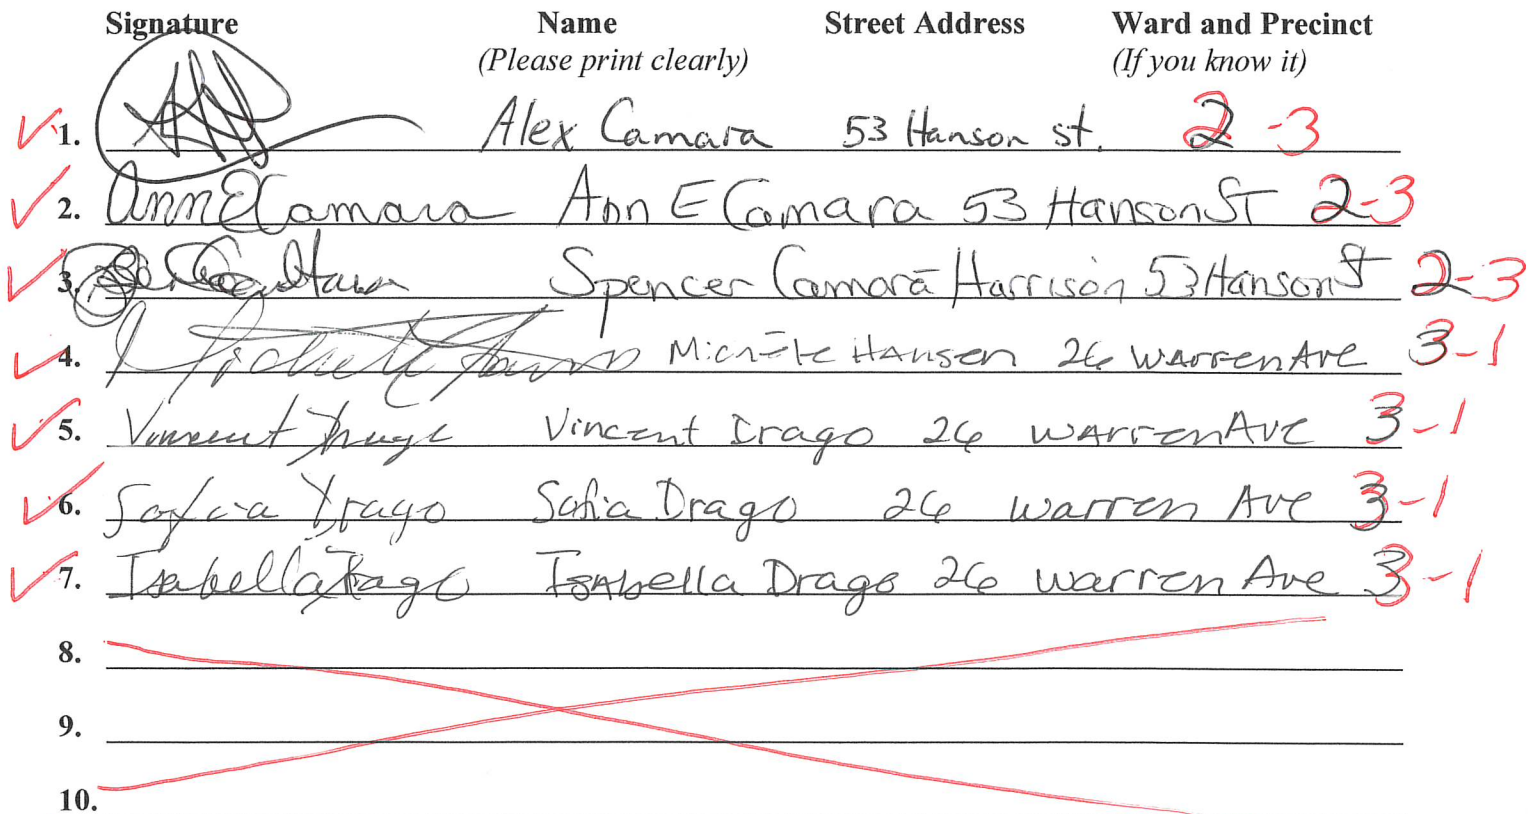 Signature Name Street Address Ward and Precinct
(Please print clearly) (If you know it)
1. Alex Camara 53 Hanson st. 2-3
2. Ann E Camara Ann E Camara 53 Hanson ST 2-3
3. Spencer Camara Harrison 53 Hanson St 2-3
4. Michele Hansen 26 Warren Ave 3-1
5. Vincent Drago Vincent Drago 26 Warren Ave 3-1
6. Sofia Drago Sofia Drago 26 Warren Ave 3-1
7. Isabella Drago Isabella Drago 26 Warren Ave 3-1
8.
9.
10.